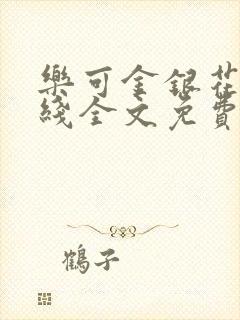 樂可金銀花
綫全文免費
鶴子